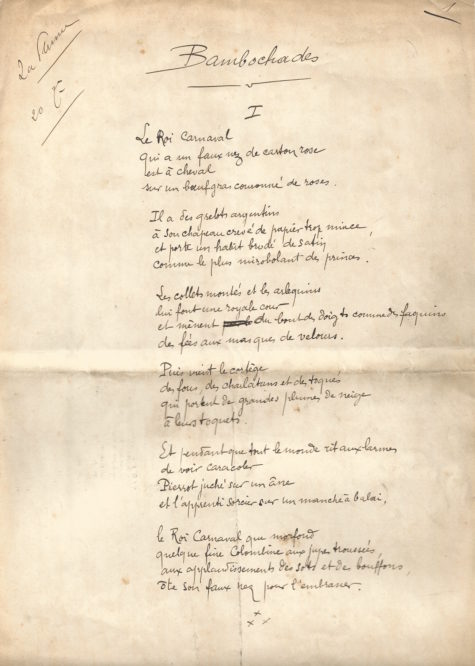 La Plume
20 f
Bambochades
I
Le Roi Carnaval
qui a un faux nez de carton rose
est à cheval
sur un bœuf gras couronné de roses.
Il a des grelots argentins
à son chapeau crevé de papier trop mince,
et porte un habit brodé de satin
comme le plus mirobolant des princes.
Les collets montés et les arlequins
lui font une royale cour
et mènent du bout des doigts comme des faquins
des fées aux masques de velours.
Puis vient le cortège
des fous, des charlatans et des toqués
qui portent de grandes plumes de neige
à leurs toquets.
Et pendant que tout le monde rit aux larmes
de voir caracoler
Pierrot juché sur un âne
et l'apprenti sorcier sur un manche à balai,
le Roi Carnaval que morfond
quelque fine Colombine aux jupes troussées,
aux applaudissements des sots et des bouffons,
ôte son faux nez pour l'embrasser.